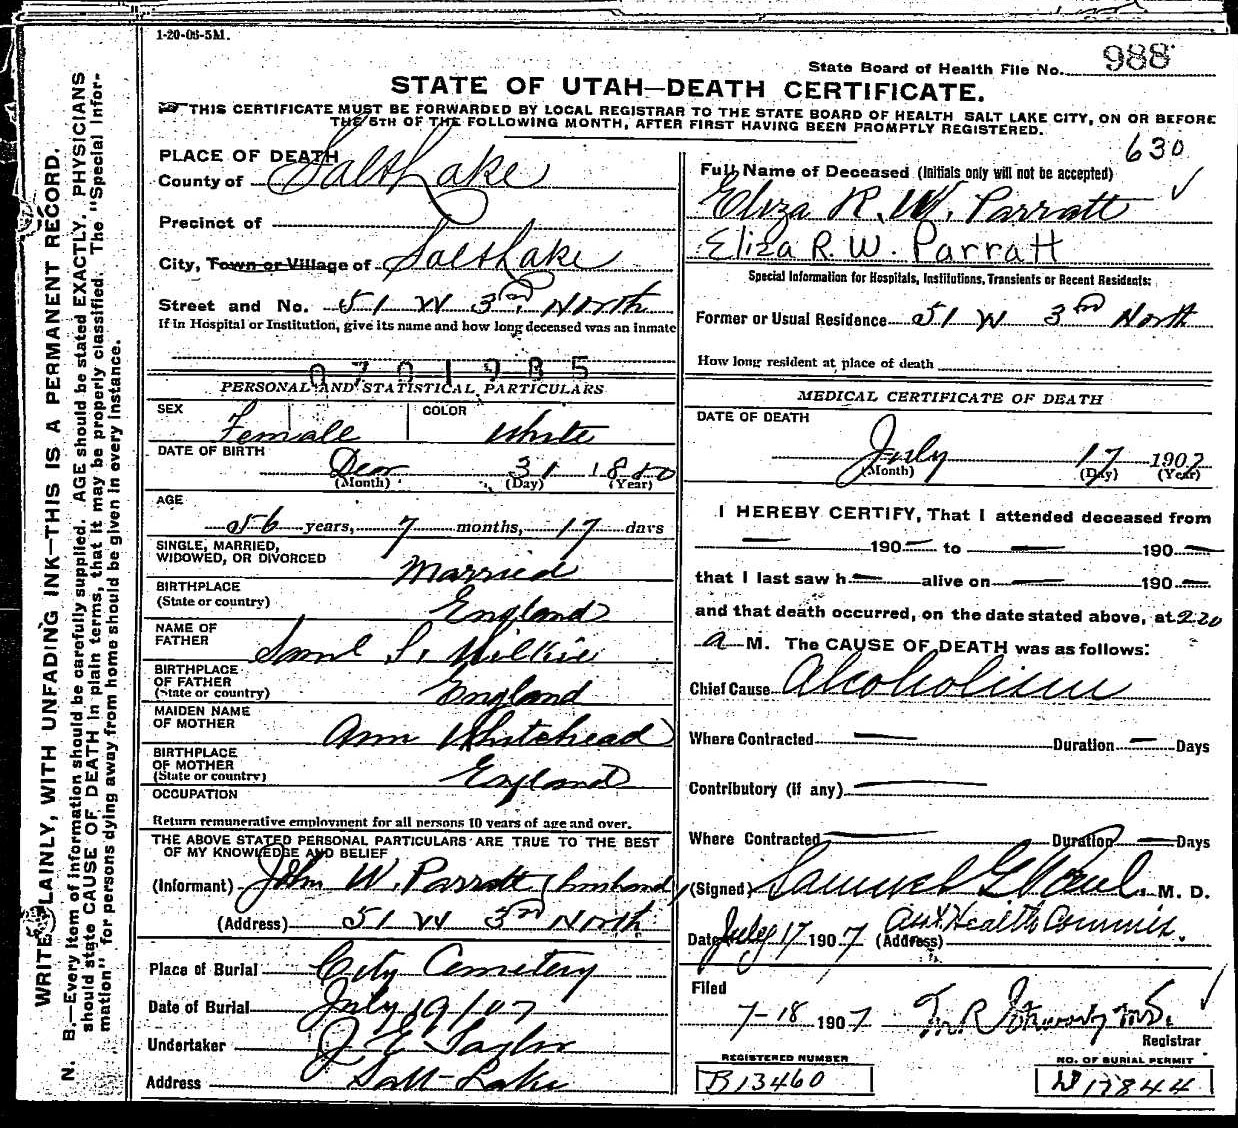 1-20-06-5M.
State Board of Health File No. 988
STATE OF UTAH—DEATH CERTIFICATE.
THIS CERTIFICATE MUST BE FORWARDED BY LOCAL REGISTRAR TO THE STATE BOARD OF HEALTH SALT LAKE CITY, ON OR BEFORE
THE 5TH OF THE FOLLOWING MONTH, AFTER FIRST HAVING BEEN PROMPTLY REGISTERED.
WRITE PLAINLY, WITH UNFADING INK—THIS IS A PERMANENT RECORD.
N. B.—Every item of information should be carefully supplied. AGE should be stated EXACTLY. PHYSICIANS
should state CAUSE OF DEATH in plain terms, that it may be properly classified. The "Special Infor-
mation" for persons dying away from home should be given in every instance.
PLACE OF DEATH
County of Salt Lake
Precinct of
City, Town or Village of Salt Lake
Street and No. 51 W 3rd North
If in Hospital or Institution, give its name and how long deceased was an inmate
0701985
PERSONAL AND STATISTICAL PARTICULARS
SEX Female COLOR White
DATE OF BIRTH Dec 31 1850
(Month) (Day) (Year)
AGE
56 years, 7 months, 17 days
SINGLE, MARRIED,
WIDOWED, OR DIVORCED Married
BIRTHPLACE
(State or country) England
NAME OF
FATHER Saml S. Wilkie
BIRTHPLACE
OF FATHER
(State or country) England
MAIDEN NAME
OF MOTHER Ann Whitehead
BIRTHPLACE
OF MOTHER
(State or country) England
OCCUPATION
Return remunerative employment for all persons 10 years of age and over.
THE ABOVE STATED PERSONAL PARTICULARS ARE TRUE TO THE BEST
OF MY KNOWLEDGE AND BELIEF
(Informant) John W. Parratt (husband)
(Address) 51 W 3rd North
Place of Burial City Cemetery
Date of Burial July 19/07
Undertaker J E Taylor
Address Salt Lake
630
Full Name of Deceased (Initials only will not be accepted)
Eliza R. W. Parratt
Eliza R. W. Parratt
Special Information for Hospitals, Institutions, Transients or Recent Residents:
Former or Usual Residence 51 W 3rd North
How long resident at place of death
MEDICAL CERTIFICATE OF DEATH
DATE OF DEATH
July 17 1907
(Month) (Day) (Year)
I HEREBY CERTIFY, That I attended deceased from
— 190— to — 190—
that I last saw h— alive on — 190—
and that death occurred, on the date stated above, at 2 20
a M. The CAUSE OF DEATH was as follows:
Chief Cause Alcoholism
Where Contracted — Duration — Days
Contributory (if any) —
Where Contracted — Duration — Days
(Signed) Samuel G. Paul, M. D.
Date July 17 1907 (Address) Asst. Health Commis.
Filed
7-18 1907
Registrar
REGISTERED NUMBER NO. OF BURIAL PERMIT
B13460